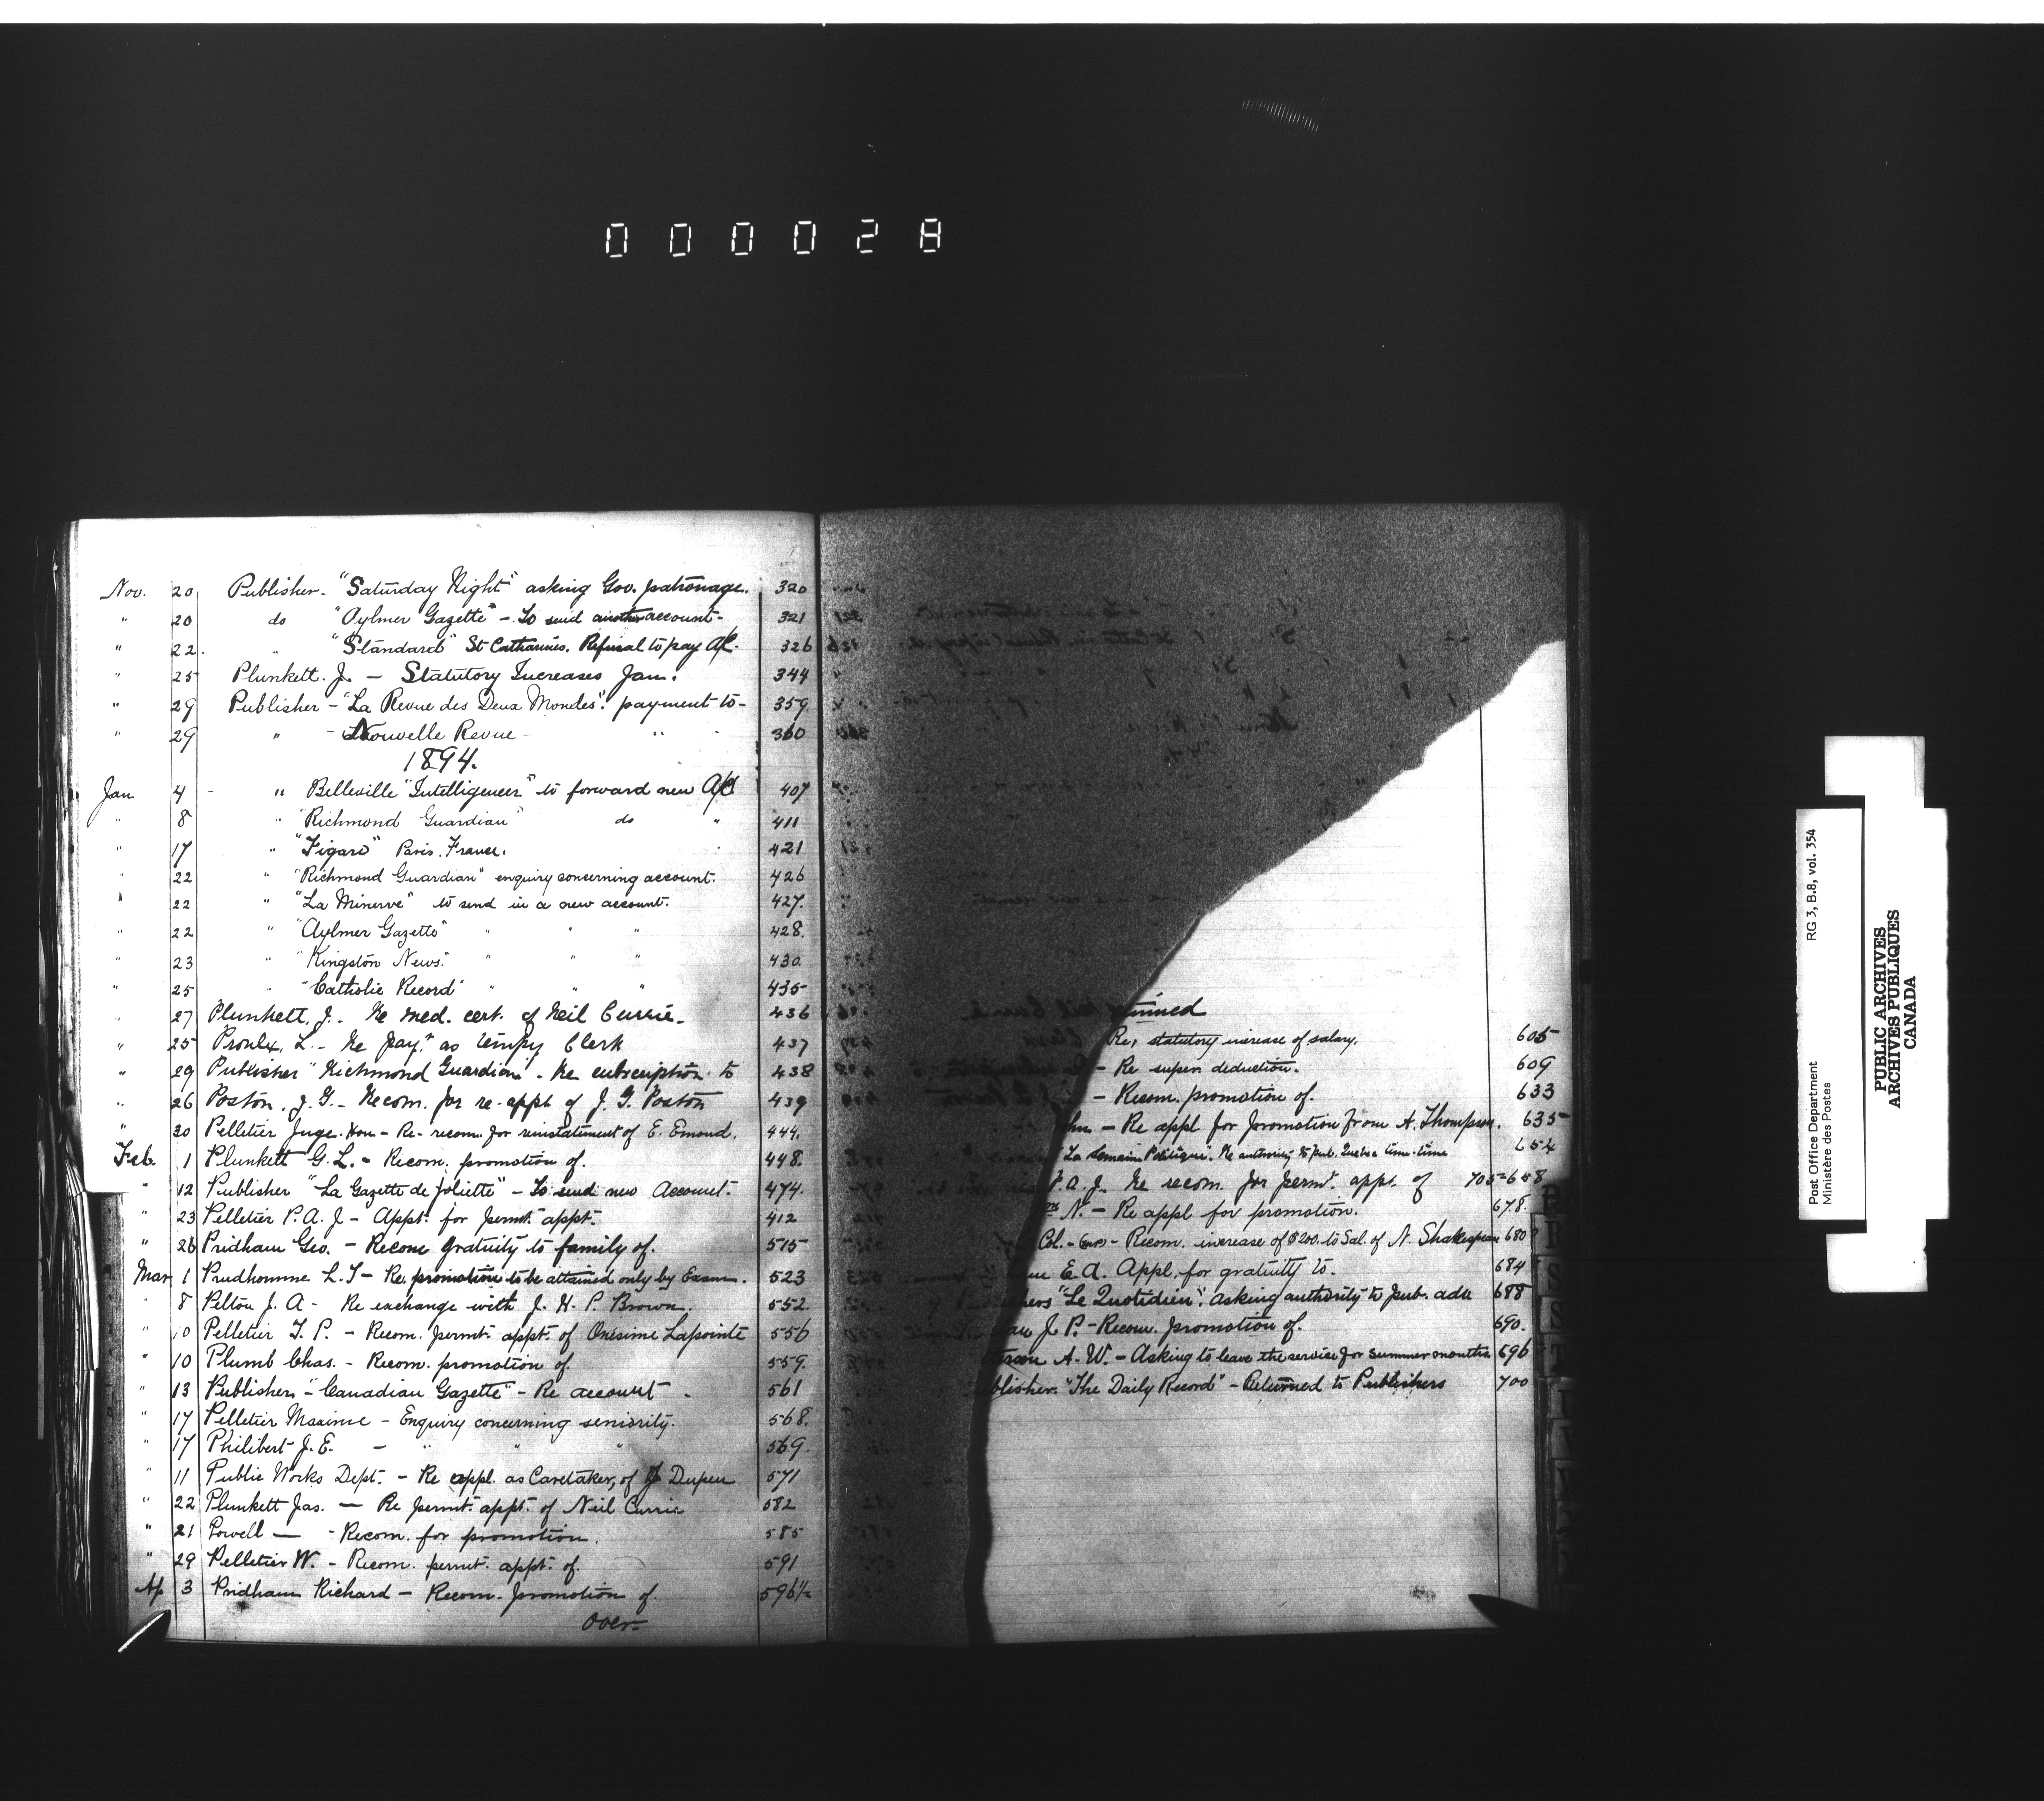 000028
Nov. 20 Publisher - "Saturday Night" asking Gov. patronage. 320
" 20 do "Aylmer Gazette" - To send another account - 321
" 22. " "Standard" St Catharines. Refusal to pay A/c. 326
" 25 Plunkett. J. - Statutory Increases Jan. 344
" 29 Publisher - "La Revue des Deux Mondes". payment to - 359.
" 29 " - Nouvelle Revue - " 360
1894.
Jan 4 - " Belleville "Intelligencer" to forward new A/c 407
" 8 " "Richmond Guardian" do " 411
" 17 " "Figaro" Paris. France. 421
" 22 " "Richmond Guardian" enquiry concerning account. 426
" 22 " "La Minerve" to send in a new account. 427.
" 22 " "Aylmer Gazette" " " " 428.
" 23 " "Kingston News." " " " 430.
" 25 " "Catholic Record" " " " 435
" 27 Plunkett, J. - Re med. cert. of Neil Currie - 436
" 25 Proulx, L. - Re pay.t as tempy Clerk 437
" 29 Publisher "Richmond Guardian" - Re subscription to 438
" 26 Poston, J. G. - Recom. for re-appt of J. G. Poston 439
" 30 Pelletier Juge. Hon - Re - recom. for reinstatement of E. Emond. 444.
Feb. 1 Plunkett G. L. - Recom. promotion of. 448.
" 12 Publisher "La Gazette de Joliette" - To send new Account. 474.
" 23 Pelletier P. A. J - Appt. for permt. appt. 412
" 26 Pridham Geo. - Recom gratuity to family of. 515
Mar 1 Prudhomme L. T - Re. promotion to be attained only by Exam. 523
" 8 Pelton J. A - Re exchange with J. H. P. Brown. 552.
" 10 Pelletier T. P. - Recom. permt. appt. of Onésime Lapointe 556
" 10 Plumb Chas. - Recom. promotion of. 559.
" 13 Publishers - "Canadian Gazette" - Re account - 561
" 17 Pelletier Maxime - Enquiry concerning seniority. 568.
" 17 Philibert J. E. - " " " 569.
" 11 Public Works Dept. - Re appl. as Caretaker, of J Dupen 571
" 22 Plunkett Jas. - Re permt. appt. of Neil Currie 582
" 21 Powell - - Recom. for promotion. 585
" 29 Pelletier W. - Recom. permt. appt. of. 591
Ap 3 Pridham Richard - Recom. promotion of. 596½
over -
tinued
Re, statutory increase of salary. 605
- Re super deduction. 609
- Recom. promotion of. 633
hn. - Re appl for promotion from A. Thompson. 635
"La Semaine Politique". Re authority to pub. Quebec time-time 654
P. A. J. Re recom. for permt. appt. of 705-658
N. - Re appl for promotion. 678.
Col. - - Recom. increase of $200. to Sal. of N. Shakespeare 680
E. A. Appl. for gratuity to. 684
hers "Le Quotidien". Asking authority to pub. adv 688
au J. P. - Recom. promotion of. 690.
A. W. - Asking to leave the service for summer months. 696
blisher. "The Daily Record" - Returned to Publishers 700
P
R
S
S
T
T
V
Post Office Department
Ministère des Postes
RG 3, B.8, vol. 354
PUBLIC ARCHIVES
ARCHIVES PUBLIQUES
CANADA